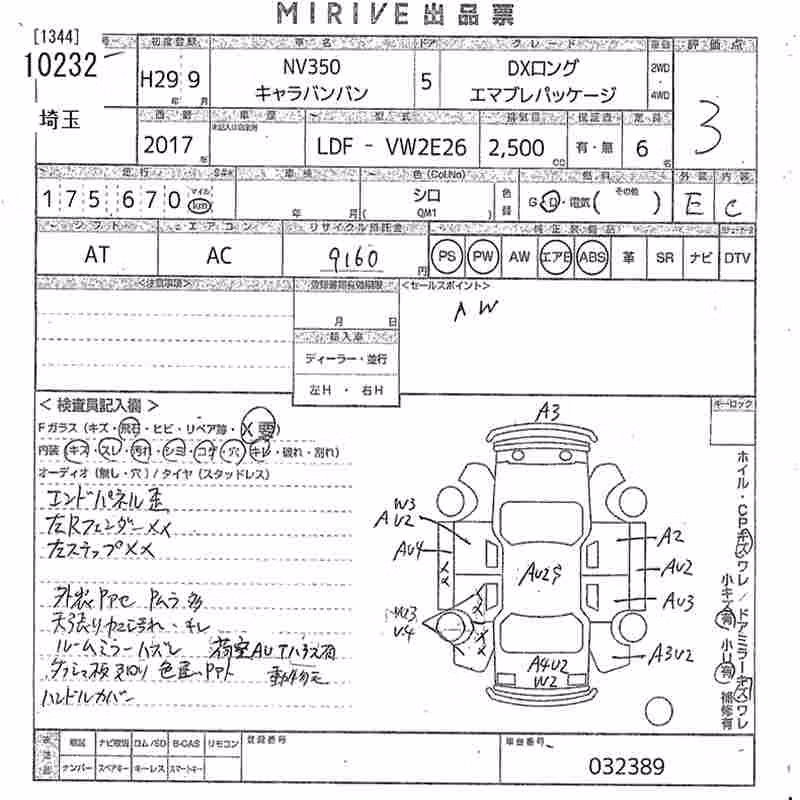 MIRIVE 出品票
[1344]
10232
埼玉
初度登録
車名
ドア
グレード
評価点
H29 9
年 月
NV350
キャラバンバン
5
DXロング
エマブレパッケージ
2WD
・
4WD
3
西暦
車歴
型式
排気量
保証書
定員
2017 年
LDF - VW2E26
2,500 cc
有・無
6 名
走行
車検
色 (Col.No)
燃料
外装
内装
175670
マイル
km
年 月
シロ
( QM1 )
色替
G・D・電気(
その他
)
E
C
シフト
エアコン
リサイクル預託金
純正装備品
AT
AC
9160 円
PS
PW
AW
エアB
ABS
革
SR
ナビ
DTV
<注意事項>
登録書類有効期限
<セールスポイント>
月 日
AW
輸入車
ディーラー・並行
左H ・ 右H
< 検査員記入欄 >
キーロック
Fガラス (キズ・飛石・ヒビ・リペア跡・X要)
内装 (キズ・スレ・汚れ・シミ・コゲ・穴・キレ・破れ・割れ)
オーディオ (無し・穴) / タイヤ (スタッドレス)
エンドパネル歪
左Rフェンダー XX
左ステップ XX
ルームミラーハズレ
ハンドルカバー
A3
W3
AU2
AU4
XX
A2
AU2
AU3
AU2S
W3
U4
A3U2
A4U2
W2
ホイル・CPキズワレ / ドアミラーキズワレ
小キズ有 小U有 補修有
取説
ナビ取説
ロム/SD
B-CAS
リモコン
ナンバー
スペアキー
キーレス
スマートキー
登録番号
車台番号
032389